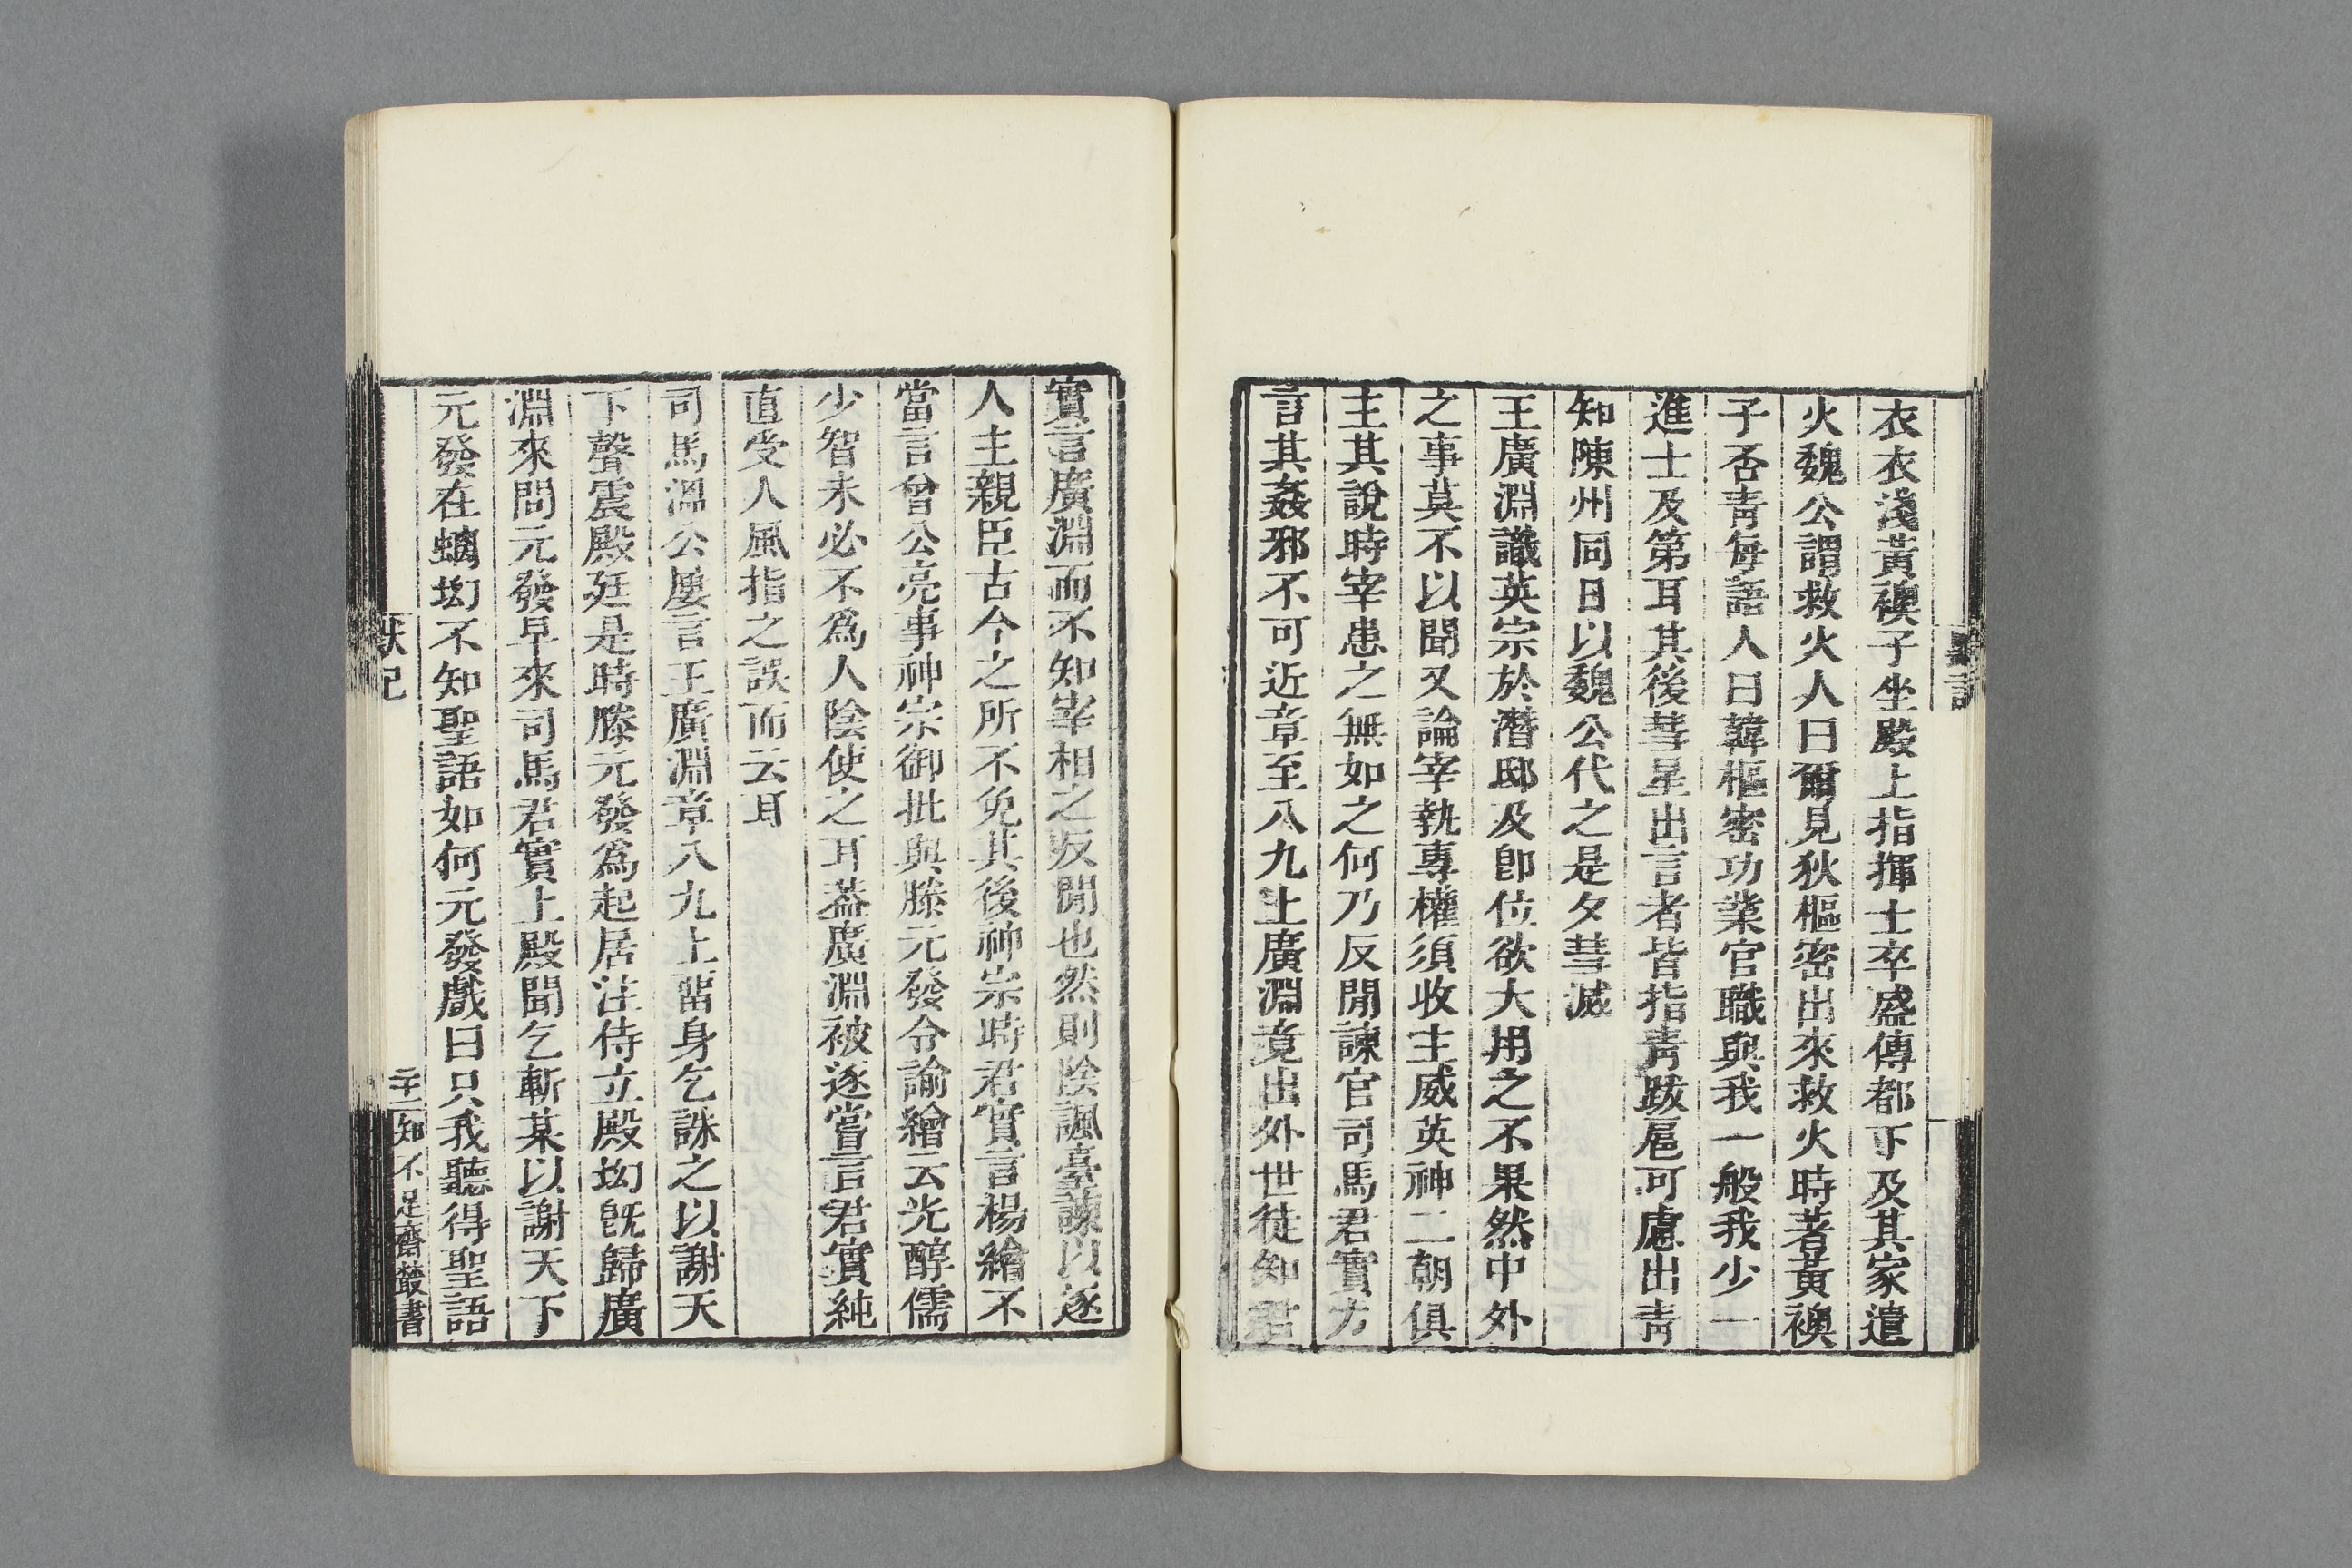 衣衣淺黃襖子坐殿上指揮士卒盛傳都下及其家遣
火魏公謂救火人曰爾見狄樞密出來救火時著黃襖
子否靑每語人曰韓樞密功業官職與我一般我少一
進士及第耳其後彗星出言者皆指靑跋扈可慮出靑
知陳州同日以魏公代之是夕彗滅
王廣淵讖英宗於潛邸及卽位欲大用之不果然中外
之事莫不以聞又論宰執專權須收主威英神二朝俱
主其說時宰患之無如之何乃反閒諫官司馬君實方
言其姦邪不可近章至八九上廣淵竟出外世徒知君
實言廣淵而不知宰相之反閒也然則陰諷臺諫以逐
人主親臣古今之所不免其後神宗時君實言楊繪不
當言曾公亮事神宗御批與滕元發令諭繪云光醇儒
少智未必不爲人陰使之耳葢廣淵被逐嘗言君實純
直受人風指之誤而云耳
司馬溫公屢言王廣淵章八九上畱身乞誅之以謝天
下聲震殿廷是時滕元發爲起居注侍立殿㘭旣歸廣
淵來問元發早來司馬君實上殿聞乞斬某以謝天下
元發在螭㘭不知聖語如何元發戲曰只我聽得聖語
默記
二十一
知不足齋叢書